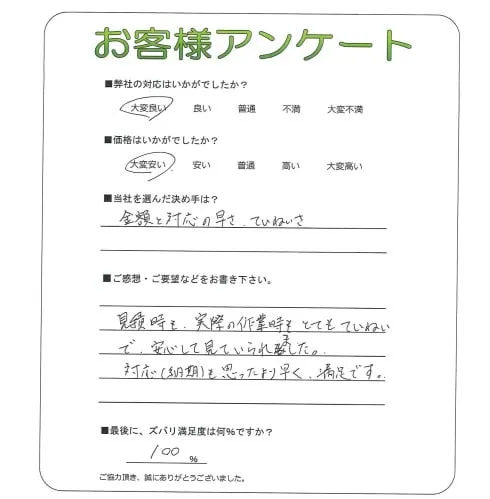 お客様アンケート
■弊社の対応はいかがでしたか？
大変良い 良い 普通 不満 大変不満
■価格はいかがでしたか？
大変安い 安い 普通 高い 大変高い
■当社を選んだ決め手は？
金額と対応の早さ、ていねいさ
■ご感想・ご要望などをお書き下さい。
見積時も、実際の作業時もとてもていねい
で、安心して見ていられました。
対応(納期)も思ったより早く、満足です。
■最後に、ズバリ満足度は何％ですか？
100 %
ご協力頂き、誠にありがとうございました。